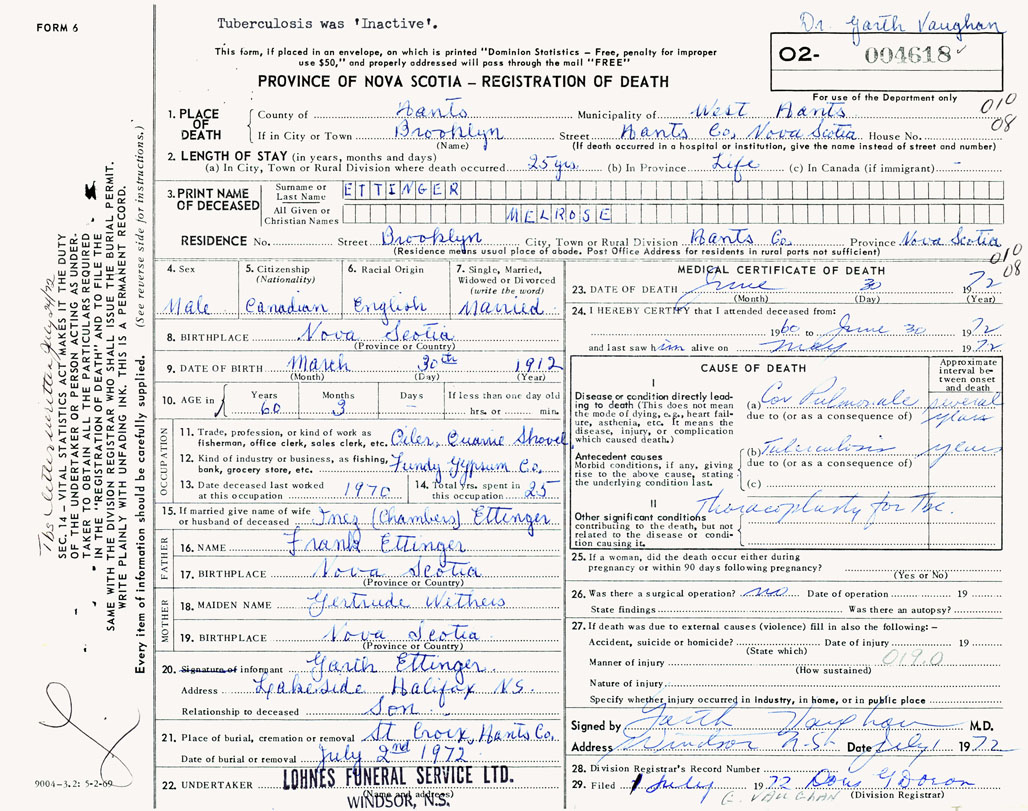 FORM 6
Tuberculosis was 'Inactive'.
Dr. Garth Vaughan
This form, if placed in an envelope, on which is printed "Dominion Statistics – Free, penalty for improper
use $50," and properly addressed will pass through the mail "FREE"
O2- 004618
PROVINCE OF NOVA SCOTIA – REGISTRATION OF DEATH
For use of the Department only
010
08
1. PLACE OF DEATH
County of Hants Municipality of West Hants
If in City or Town Brooklyn Street Hants Co, Nova Scotia House No.
(Name) (If death occurred in a hospital or institution, give the name instead of street and number)
2. LENGTH OF STAY (in years, months and days)
(a) In City, Town or Rural Division where death occurred 25 yrs. (b) In Province Life (c) In Canada (if immigrant) –
3. PRINT NAME OF DECEASED
Surname or Last Name ETTINGER
All Given or Christian Names MELROSE
RESIDENCE No. Street Brooklyn City, Town or Rural Division Hants Co. Province Nova Scotia
(Residence means usual place of abode. Post Office Address for residents in rural parts not sufficient)
010
08
4. Sex
Male
5. Citizenship (Nationality)
Canadian
6. Racial Origin
English
7. Single, Married, Widowed or Divorced (write the word)
Married
8. BIRTHPLACE Nova Scotia
(Province or Country)
9. DATE OF BIRTH March 30th 1912
(Month) (Day) (Year)
10. AGE in Years Months Days If less than one day old
60 3 – hrs. or min.
OCCUPATION
11. Trade, profession, or kind of work as
fisherman, office clerk, sales clerk, etc. Oiler, Quarrie Shovel
12. Kind of industry or business, as fishing,
bank, grocery store, etc. Fundy Gypsum Co.
13. Date deceased last worked
at this occupation 1970
14. Total yrs. spent in
this occupation 25
15. If married give name of wife
or husband of deceased Inez (Chambers) Ettinger
FATHER
16. NAME Frank Ettinger
17. BIRTHPLACE Nova Scotia
(Province or Country)
MOTHER
18. MAIDEN NAME Gertrude
19. BIRTHPLACE Nova Scotia
(Province or Country)
20. Signature of informant Garth Ettinger
Address Lakeside Halifax N.S.
Relationship to deceased Son
21. Place of burial, cremation or removal St Croix, Hants Co.
Date of burial or removal July 2nd 1972
22. UNDERTAKER LOHNES FUNERAL SERVICE LTD.
(Name and address)
WINDSOR, N.S.
MEDICAL CERTIFICATE OF DEATH
23. DATE OF DEATH June 30 1972
(Month) (Day) (Year)
24. I HEREBY CERTIFY that I attended deceased from:
1960 to June 30 1972
and last saw him alive on May 1972
CAUSE OF DEATH
Approximate interval between onset and death
I
Disease or condition directly leading
to death (This does not mean
the mode of dying, e.g., heart failure,
asthenia, etc. It means the
disease, injury, or complication
which caused death.)
(a) Cor Pulmonale several years
due to (or as a consequence of)
Antecedent causes
Morbid conditions, if any, giving
rise to the above cause, stating
the underlying condition last.
(b) Tuberculosis years
due to (or as a consequence of)
(c)
II
Other significant conditions
contributing to the death, but not
related to the disease or condition
causing it.
Thoracoplasty for Tbc.
25. If a woman, did the death occur either during
pregnancy or within 90 days following pregnancy?
(Yes or No)
26. Was there a surgical operation? no Date of operation 19
State findings Was there an autopsy?
27. If death was due to external causes (violence) fill in also the following: –
Accident, suicide or homicide? Date of injury 19
(State which)
Manner of injury 019.0
(How sustained)
Nature of injury
Specify whether injury occurred in industry, in home, or in public place
Signed by Garth Vaughan M.D.
Address Windsor N.S. Date July 1 1972
28. Division Registrar's Record Number
29. Filed 1 July 1972 Doris G Doran
G. VAUGHAN (Division Registrar)
This letter written July 24/72
SEC. 14 – VITAL STATISTICS ACT MAKES IT THE DUTY
OF THE UNDERTAKER OR PERSON ACTING AS UNDERTAKER
TO OBTAIN ALL THE PARTICULARS REQUIRED
IN THE "REGISTRATION OF DEATH" AND TO FILE THE
SAME WITH THE DIVISION REGISTRAR WHO SHALL ISSUE THE BURIAL PERMIT.
WRITE PLAINLY WITH UNFADING INK. THIS IS A PERMANENT RECORD.
Every item of information should be carefully supplied. (See reverse side for instructions.)
9004-3.2: 5-2-69